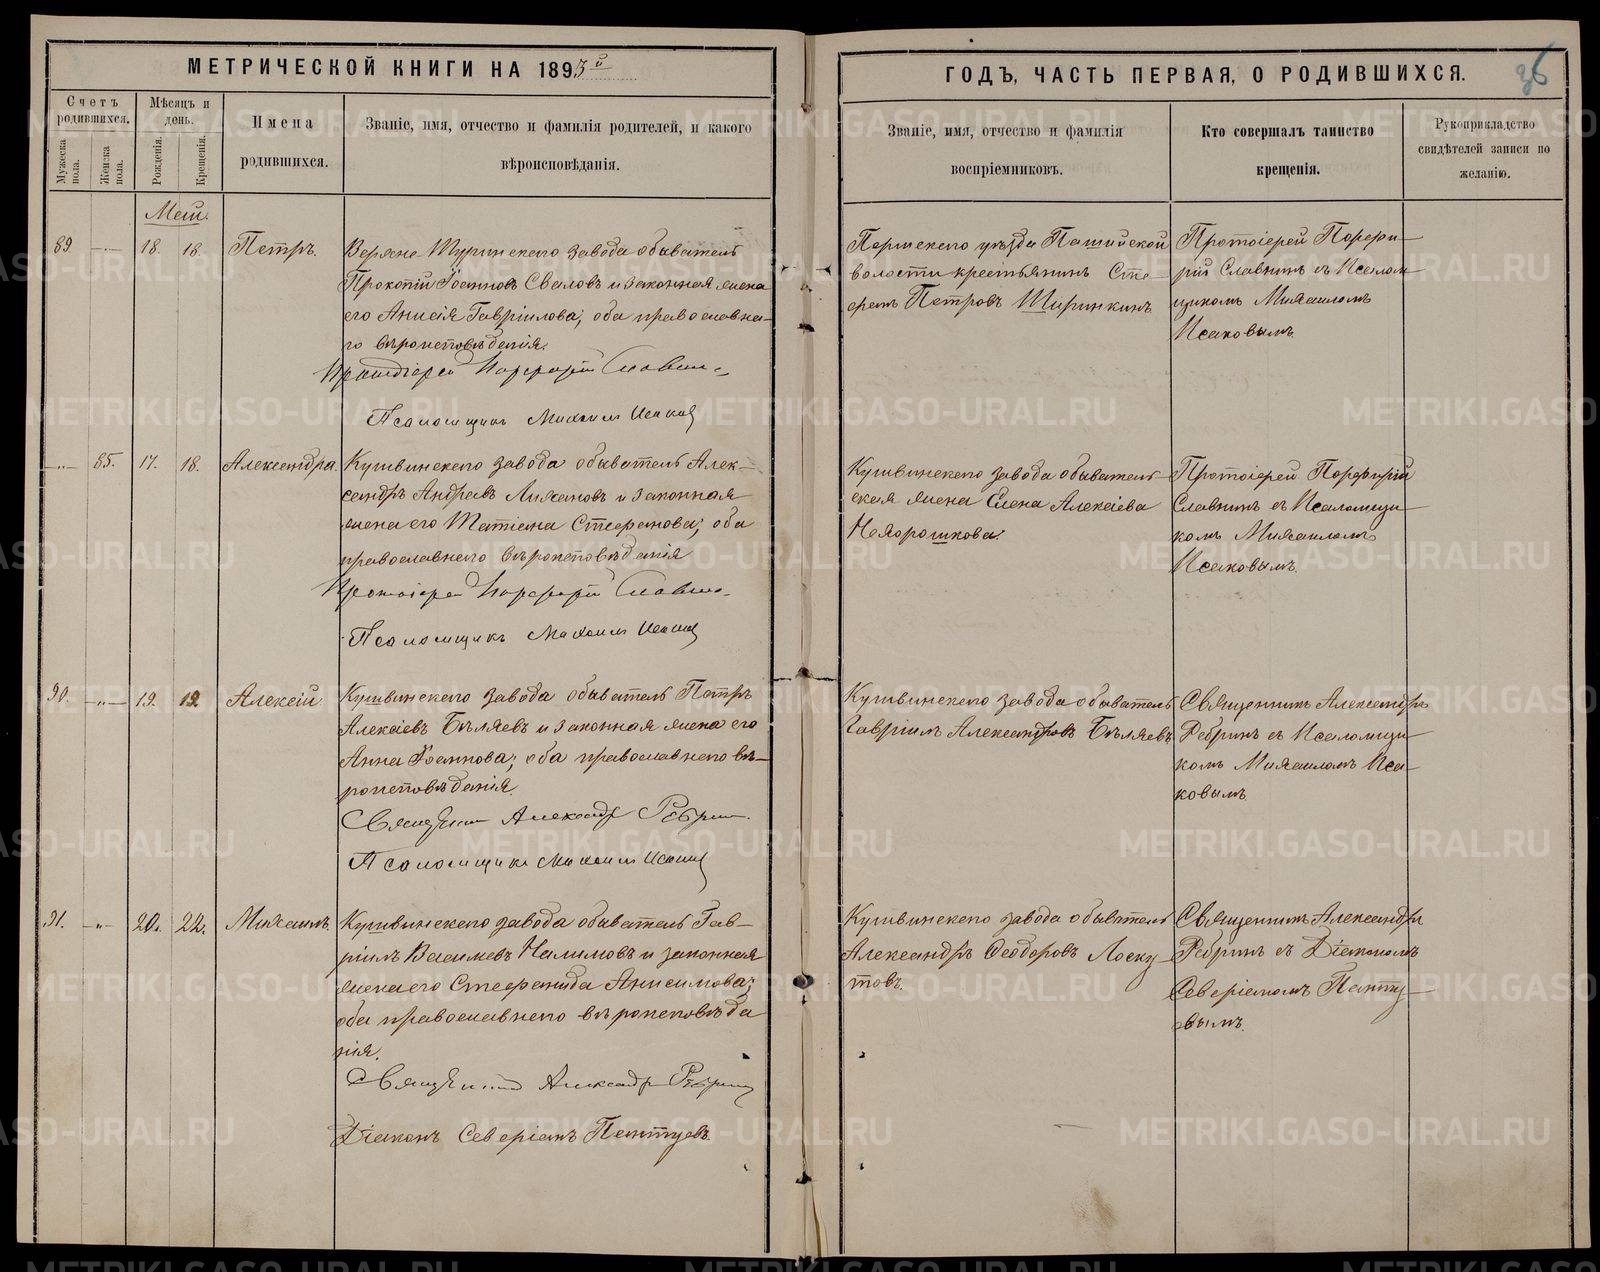 МЕТРИЧЕСКОЙ КНИГИ НА 1893й
ГОДЪ, ЧАСТЬ ПЕРВАЯ, О РОДИВШИХСЯ.
36
Счетъ родившихся.
Мужеска пола.
Женска пола.
Мѣсяцъ и день.
Рожденія.
Крещенія.
Имена родившихся.
Званіе, имя, отчество и фамилія родителей, и какого
вѣроисповѣданія.
Званіе, имя, отчество и фамилія
воспріемниковъ.
Кто совершалъ таинство
крещенія.
Рукоприкладство
свидѣтелей записи по
желанію.
Май.
89 —„— 18. 18. Петръ.
Верхне Туринскаго завода обыватель
Прокопій Іоанновъ Сваловъ и законная жена
его Анисія Гавріилова; оба православна-
го вѣроисповѣданія.
Протоіерей Порфирій Славнинъ
Псаломщикъ Михаилъ Исаковъ
Пермскаго уѣзда Пашійской
волости крестьянинъ Сте-
фанъ Петровъ Ширинкинъ
Протоіерей Порфи-
рій Славнинъ съ Псалом
щикомъ Михаиломъ
Исаковымъ.
—„— 85. 17. 18. Александра.
Кушвинскаго завода обыватель Алек-
сандръ Андреевъ Лихановъ и законная
жена его Татіана Стефанова; оба
православнаго вѣроисповѣданія
Протоіерей Порфирій Славнинъ
Псаломщикъ Михаилъ Исаковъ
Кушвинскаго завода обыватель-
ская жена Елена Алексіева
Нехорошкова.
Протоіерей Порфирій
Славнинъ съ Псаломщи-
комъ Михаиломъ
Исаковымъ.
90. —„— 19. 19. Алексій
Кушвинскаго завода обыватель Петръ
Алексіевъ Бѣляевъ и законная жена его
Анна Іоаннова; оба православнаго вѣ-
роисповѣданія.
Священникъ Александръ Ребринъ.
Псаломщикъ Михаилъ Исаковъ
Кушвинскаго завода обыватель
Гавріилъ Александровъ Бѣляевъ
Священникъ Александръ
Ребринъ съ Псаломщи-
комъ Михаиломъ Иса-
ковымъ
91. —„— 20. 22. Михаилъ.
Кушвинскаго завода обыватель Гав-
ріилъ Васильевъ Налимовъ и законная
жена его Стефанида Анисимова;
оба православнаго вѣроисповѣда
нія.
Священникъ Александръ Ребринъ
Діаконъ Северіанъ Пантуевъ.
Кушвинскаго завода обыватель
Александръ Феодоровъ Лоску-
товъ.
Священникъ Александръ
Ребринъ съ Діакономъ
Северіаномъ Панту-
евымъ.
METRIKI.GASO-URAL.RU